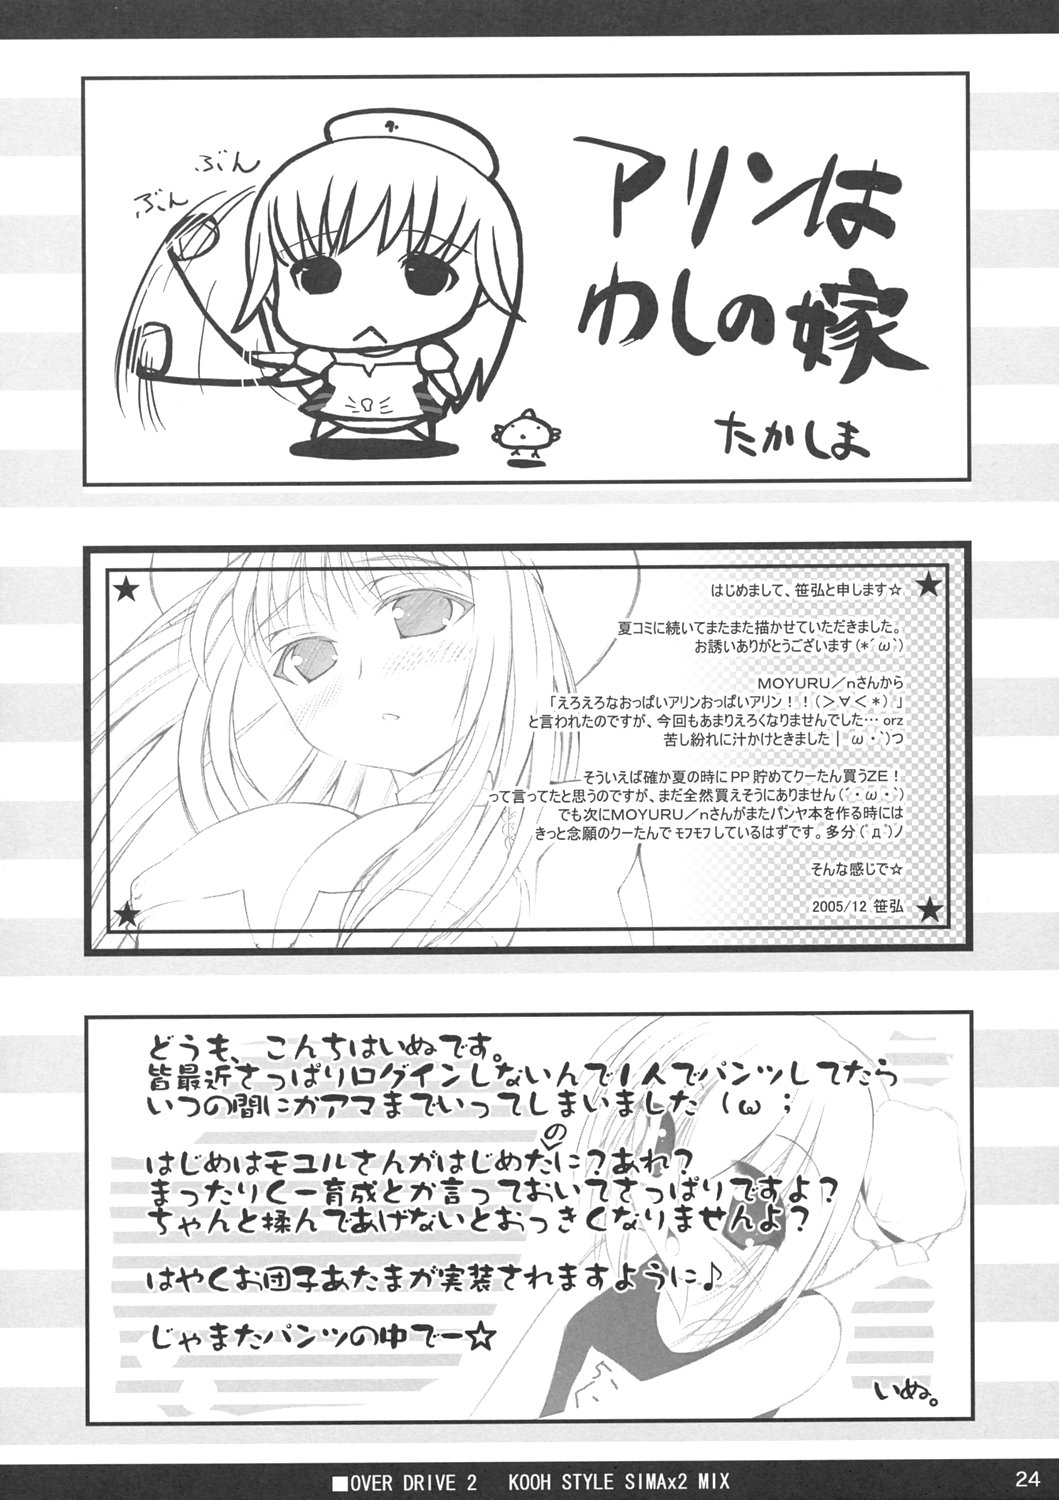 ぶん
ぶん
アリンは
わしの嫁
たかしま
はじめまして、笹弘と申します☆
夏コミに続いてまたまた描かせていただきました。
お誘いありがとうございます(*´ω`)
MOYURU/nさんから
「えろえろなおっぱいアリンおっぱいアリン！！(＞∀＜*)」
と言われたのですが、今回もあまりえろくなりませんでした… orz
苦し紛れに汁かけときました| ω・`)つ
そういえば確か夏の時に PP 貯めてクーたん買うZE！
って言ってたと思うのですが、まだ全然買えそうにありません(´・ω・`)
でも次にMOYURU/nさんがまたパンヤ本を作る時には
きっと念願のクーたんで ﾓﾌﾓﾌしているはずです。多分(ﾟдﾟ)ﾉ
そんな感じで☆
2005/12 笹弘
どうも、こんちはいぬです。
皆最近さっぱりログインしないんで1人でパンツしてたら
いつの間にかアマまでいってしまいました（ω；
はじめはモユルさんがはじめたのに？あれ？
まったりくー育成とか言っておいてさっぱりですよ？
ちゃんと揉んであげないとおっきくなりませんよ？
はやくお団子あたまが実装されますように♪
じゃまたパンツの中でー☆
いぬ。
■OVER DRIVE 2 KOOH STYLE SIMAx2 MIX
24